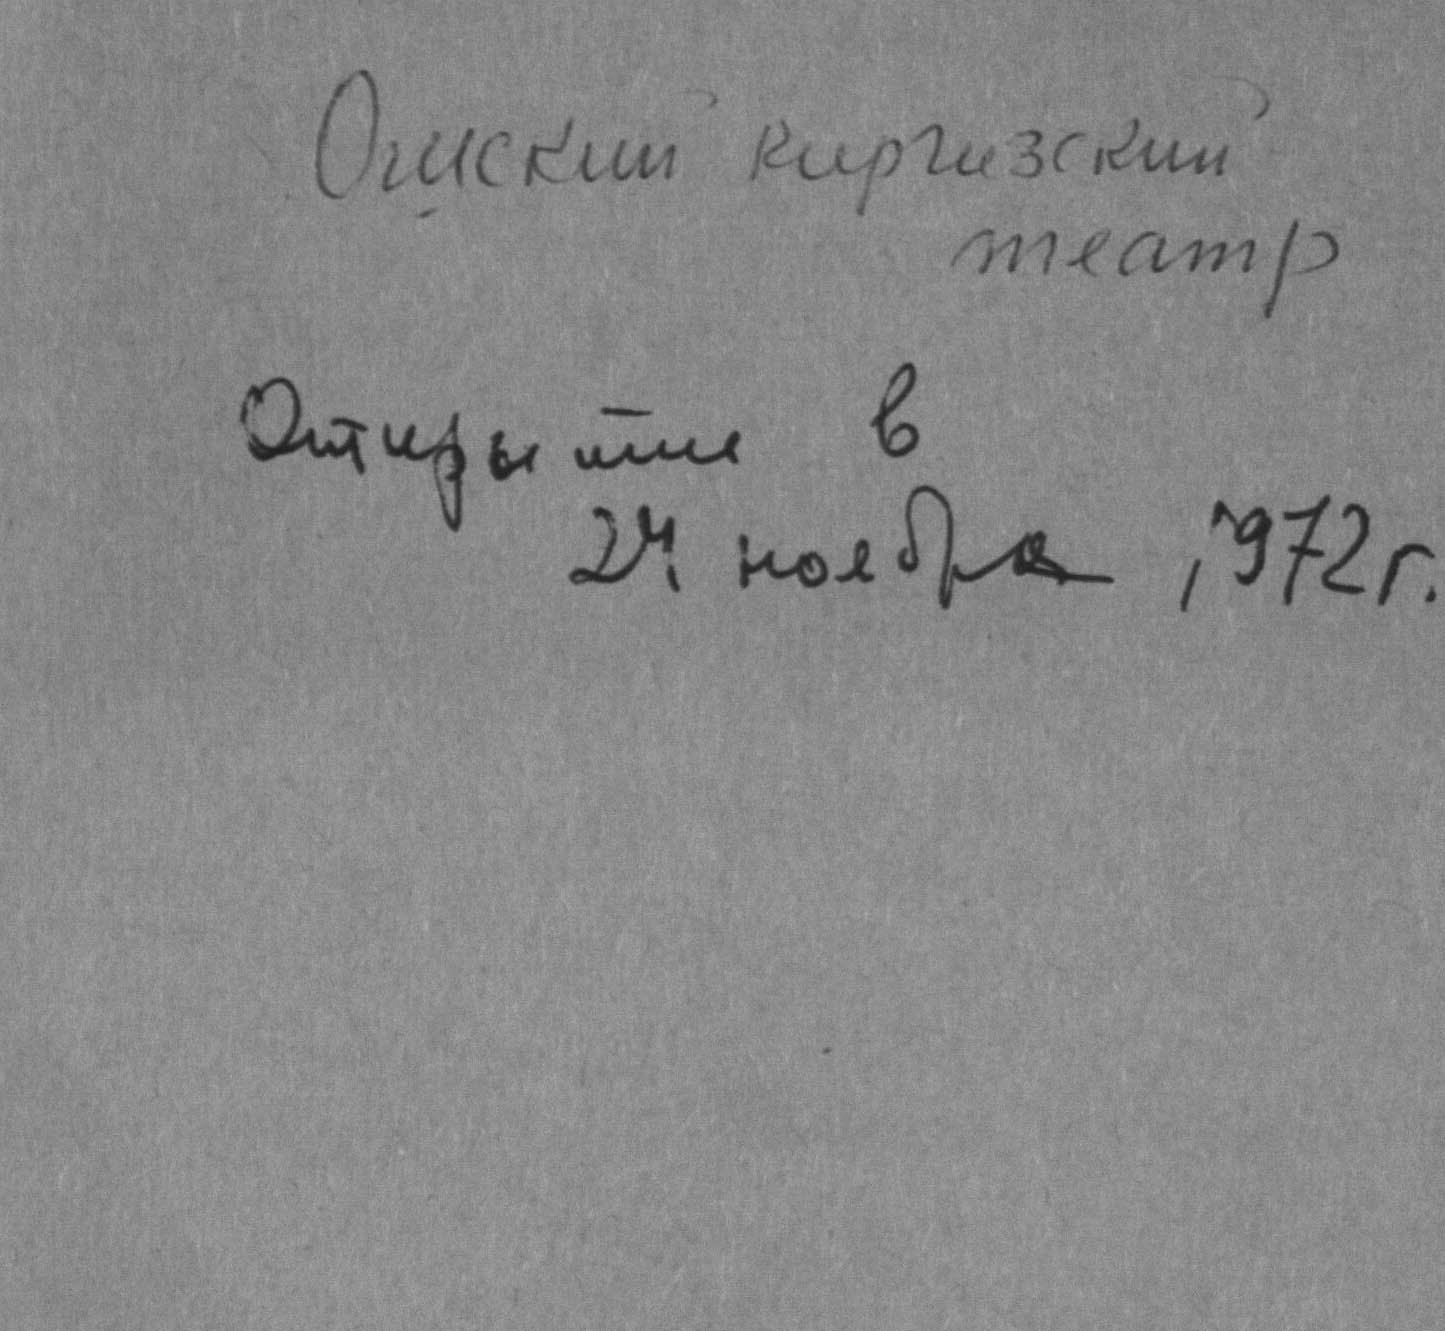 Ошский киргизский
театр
Открытие в
24 ноября 1972 г.